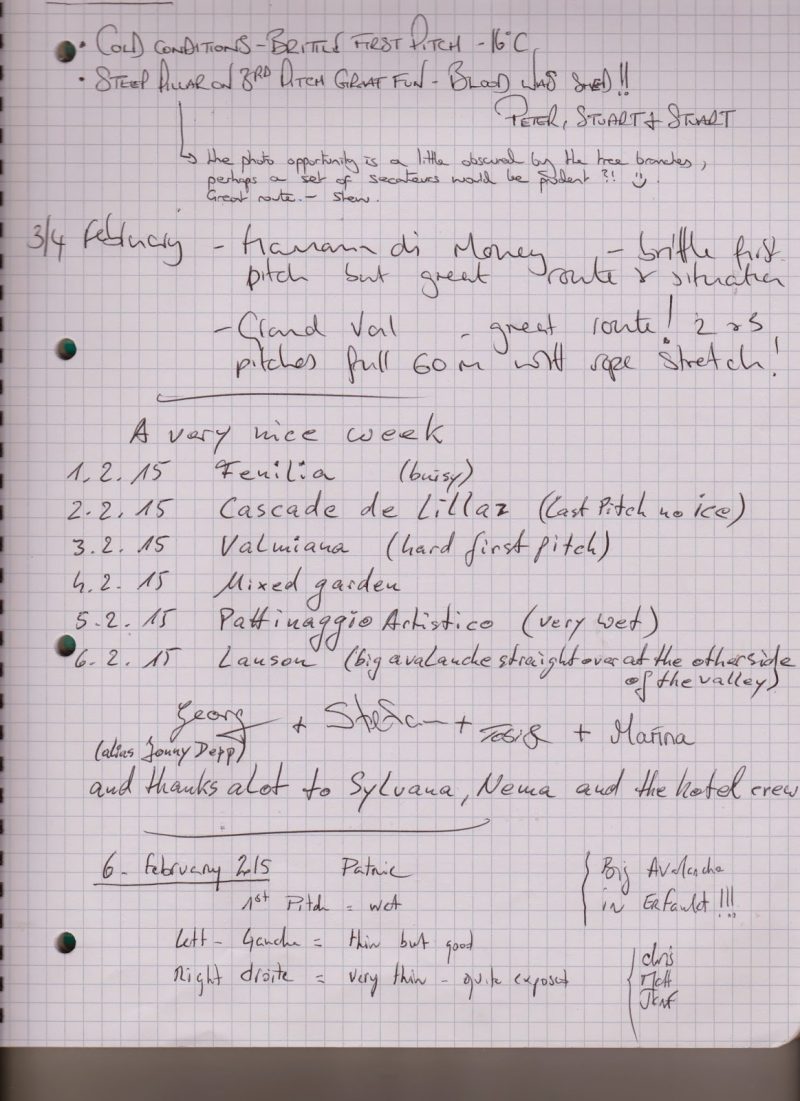 • COLD CONDITIONS - BRITTLE FIRST PITCH - 16°C,
• STEEP PILLAR ON 3RD PITCH GREAT FUN - BLOOD WAS SHED!!
PETER, STUART & STUART
↳ the photo opportunity is a little obscured by the tree branches,
perhaps a set of secateurs would be prudent ?! ☺.
Great route. - Stew.
3/4 February - Hamann di Money - brittle first
pitch but great route & situation
- Grand Val - great route! 2 & 3
pitches full 60m with rope stretch!
A very nice week
1.2.15 Fenilia (buisy)
2.2.15 Cascade de Lillaz (Last Pitch no ice)
3.2.15 Valmiana (hard first pitch)
4.2.15 Mixed garden
5.2.15 Pattinaggio Artistico (very wet)
6.2.15 Lauson (big avalanche straight over at the other side
of the valley)
Georg + Stefan + + Marina
(alias Jonny Depp)
and thanks alot to Sylvana, Nema and the hotel crew
6 - february 2015 Patric
1st Pitch = wet
Left - Gauche = thin but good
Right droite = very thin - quite exposed
Big Avalanche
in Erfault !!!
chris
Matt